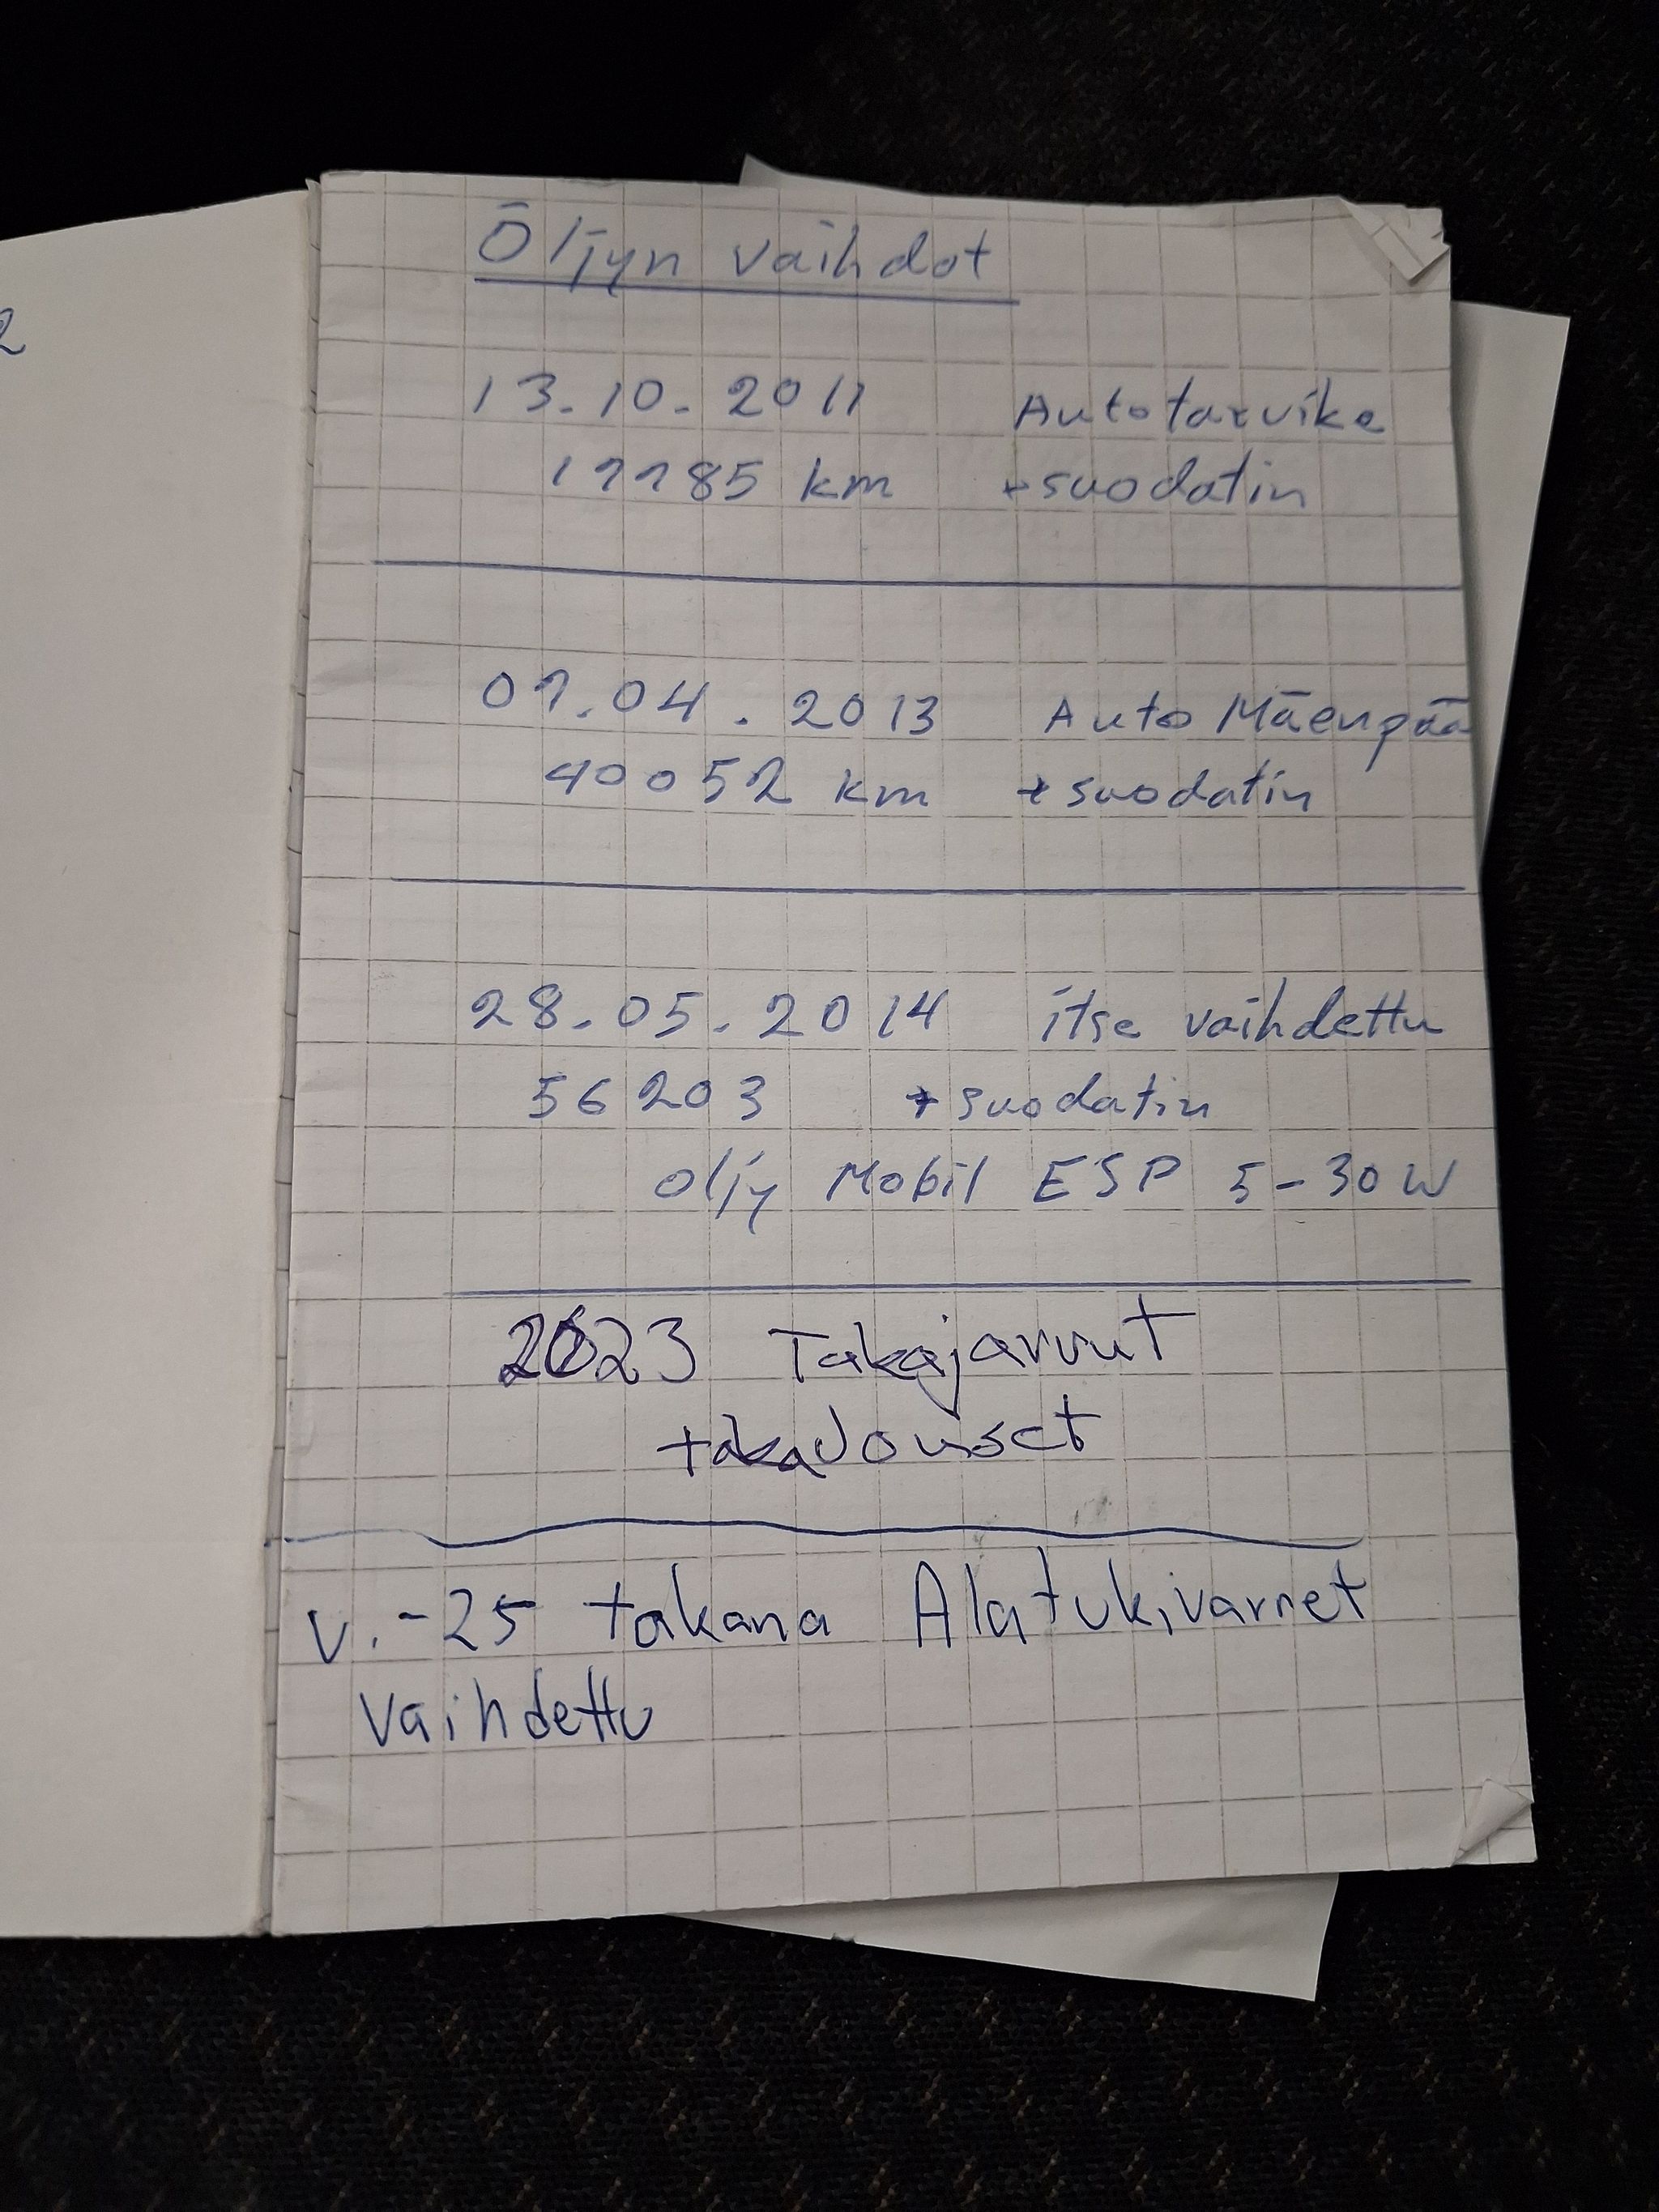 Öljyn vaihdot
13.10.2011 Autotarvike
17185 km +suodatin
07.04.2013 Auto Mäenpää
40052 km +suodatin
28.05.2014 itse vaihdettu
56203 +suodatin
öljy Mobil ESP 5-30W
2023 Takajarrut
+takaJouset
v.-25 takana Alatukivarret
vaihdettu
2